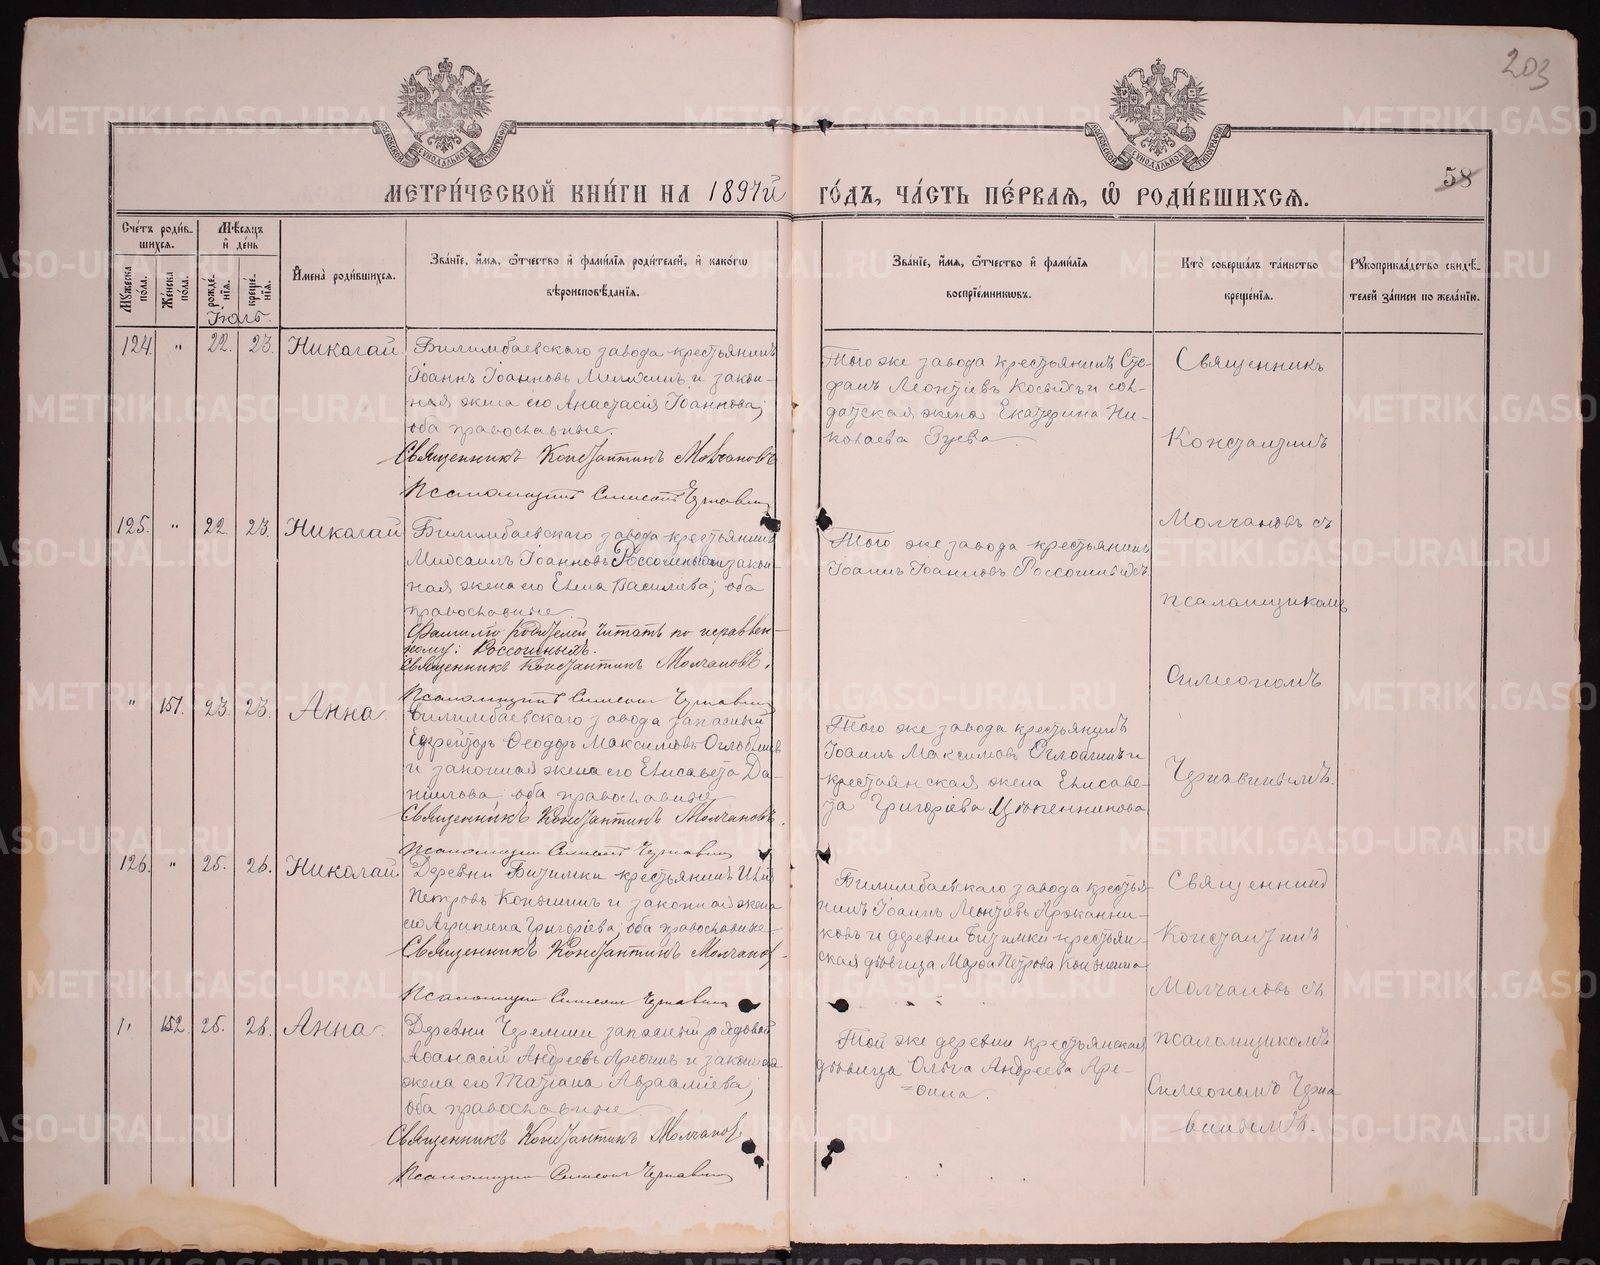 203
58
МЕТРИ́ЧЕСКОЙ КНИ́ГИ НА 1897й ГО́ДЪ, ЧА́СТЬ ПЕ́РВАѦ, Ѡ РОДИ́ВШИХСѦ.
Сче́тъ роди́в-
шихсѧ.
Мѣ́сѧцъ
и҆ де́нь
Мꙋ́жеска по́ла.
Же́нска по́ла.
рожде́-
нїѧ.
креще́-
нїѧ.
Іюль.
И҆мена̀ роди́вшихсѧ.
Зва́нїе, и҆́мѧ, ѻ҆́тчество и҆ фами́лїѧ роди́телей, и҆ како́гѡ
вѣроисповѣ́данїѧ.
Зва́нїе, и҆́мѧ, ѻ҆́тчество и҆ фами́лїѧ
воспрїе́мникѡвъ.
Кто̀ соверша́лъ та́инство
креще́нїѧ.
Рꙋкоприкла́дство свидѣ́-
телей за́писи по жела́нїю.
124. " 22. 23. Николай
Билимбаевскаго завода крестьянинъ
Іоаннъ Іоанновъ и закон-
ная жена его Анастасія Іоаннова;
оба православные.
Священникъ Константинъ Молчановъ
Псаломщикъ Симеонъ Чернавинъ
Того же завода крестьянинъ Сте-
фанъ Леонтіевъ Косыхъ и сол-
датская жена Екатерина Ни-
колаева Зуева
Священникъ
Константинъ
Молчановъ съ
псаломщикомъ
Симеономъ
Чернавинымъ.
125. " 22 23. Николай
Билимбаевскаго завода крестьянинъ
Михаилъ Іоанновъ Россошныхъ и закон-
ная жена его Елена Василіева; оба
православные
Фамилію родителей читать по исправлен-
ному: Россошныхъ.
Священникъ Константинъ Молчановъ.
Псаломщикъ Симеонъ Чернавинъ
Того же завода крестьянинъ
Іоаннъ Іоанновъ Россошныхъ
" 151. 23. 23. Анна
Билимбаевскаго завода запасный
Ефрейторъ Ѳеодоръ Максимовъ Оглоблинъ
и законная жена его Елисавета Да-
ниилова; оба православные
Священникъ Константинъ Молчановъ.
Псаломщикъ Симеонъ Чернавинъ
Того же завода крестьянинъ
Іоаннъ Максимовъ Оглоблинъ и
крестьянская жена Елисаве-
та Григоріева Цѣпенникова
126. " 25. 26. Николай
Деревни Битимки крестьянинъ
Петровъ Коньшинъ и законная жена
его Агрипина Григоріева; оба православные
Священникъ Константинъ Молчановъ
Псаломщикъ Симеонъ Чернавинъ
Билимбаевскаго завода крестья-
нинъ Іоаннъ Леонтіевъ Аржанни-
ковъ и деревни Битимки крестьян-
ская дѣвица Марѳа Петрова Коньшина
Священникъ
Константинъ
Молчановъ съ
псаломщикомъ
Симеономъ Черна
винымъ.
" 152. 25. 26. Анна
Деревни Черемши запасный рядовой
Аѳанасій Андреевъ Ареѳинъ и законная
жена его Татіана Авраамiева;
оба православные
Священникъ Константинъ Молчановъ.
Псаломщикъ Симеонъ Чернавинъ
Той же деревни крестьянская
дѣвица Ольга Андреева Аре-
=ѳина.